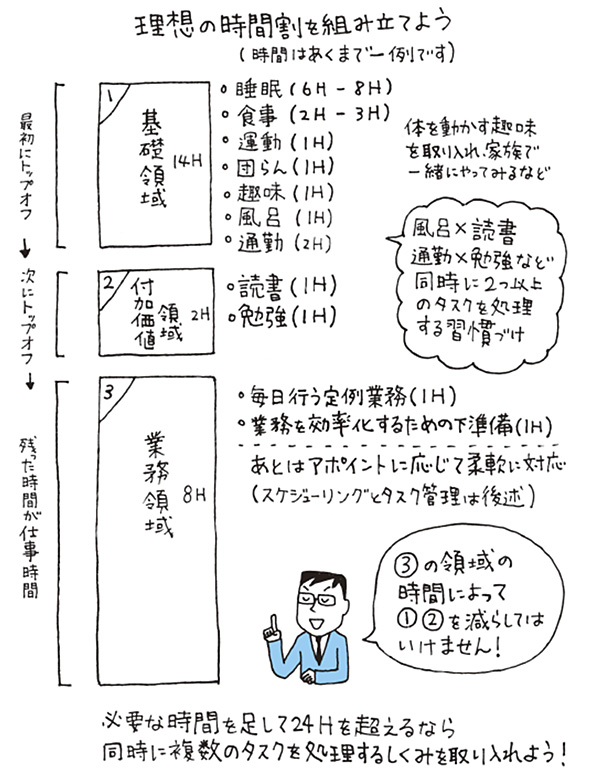 理想の時間割を組み立てよう
(時間はあくまで一例です)
最初にトップオフ
1
基礎領域
14H
・睡眠(6H-8H)
・食事(2H-3H)
・運動(1H)
・団らん(1H)
・趣味(1H)
・風呂(1H)
・通勤(2H)
体を動かす趣味
を取り入れ、家族で
一緒にやってみるなど
風呂×読書
通勤×勉強など
同時に2つ以上
のタスクを処理
する習慣づけ
次にトップオフ
2
付加価値
領域
2H
・読書(1H)
・勉強(1H)
残った時間が仕事時間
3
業務領域
8H
・毎日行う定例業務(1H)
・業務を効率化するための下準備(1H)
あとはアポイントに応じて柔軟に対応
(スケジューリングとタスク管理は後述)
③の領域の
時間によって
①②を減らしては
いけません!
必要な時間を足して24Hを超えるなら
同時に複数のタスクを処理するしくみを取り入れよう!